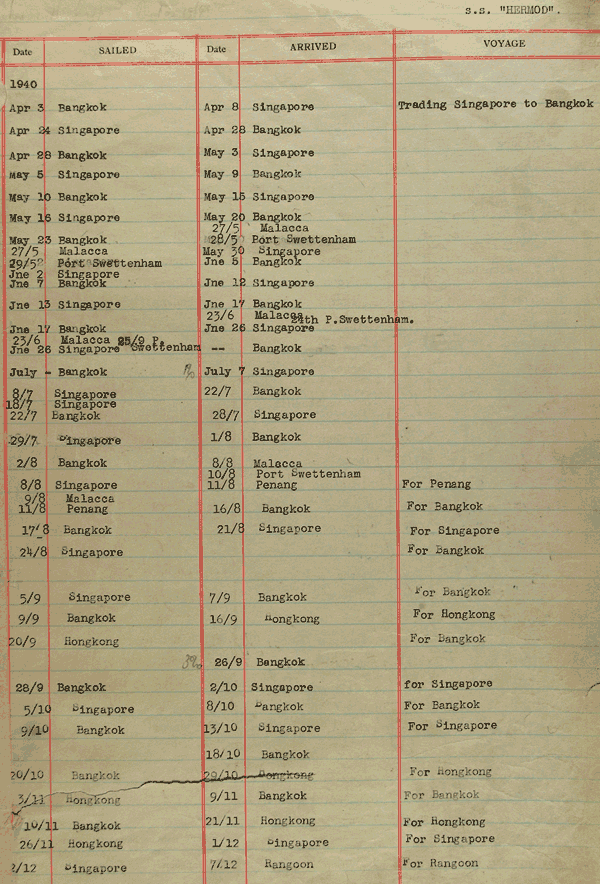 s.s. "HERMOD".
Date SAILED Date ARRIVED VOYAGE
1940
Apr 3 Bangkok Apr 8 Singapore Trading Singapore to Bangkok
Apr 24 Singapore Apr 28 Bangkok
Apr 28 Bangkok May 3 Singapore
May 5 Singapore May 9 Bangkok
May 10 Bangkok May 15 Singapore
May 16 Singapore May 20 Bangkok
27/5 Malacca
May 23 Bangkok 28/5 Port Swettenham
27/5 Malacca May 30 Singapore
29/5 Port Swettenham Jne 5 Bangkok
Jne 2 Singapore
Jne 7 Bangkok Jne 12 Singapore
Jne 13 Singapore Jne 17 Bangkok
23/6 Malacca 24th P.Swettenham.
Jne 17 Bangkok Jne 26 Singapore
23/6 Malacca 25/9 P.
Jne 26 Singapore Swettenham -- Bangkok
July - Bangkok July 7 Singapore
8/7 Singapore 22/7 Bangkok
18/7 Singapore
22/7 Bangkok 28/7 Singapore
29/7 Singapore 1/8 Bangkok
2/8 Bangkok 8/8 Malacca
10/8 Port Swettenham
8/8 Singapore 11/8 Penang For Penang
9/8 Malacca
11/8 Penang 16/8 Bangkok For Bangkok
17/8 Bangkok 21/8 Singapore For Singapore
24/8 Singapore For Bangkok
5/9 Singapore 7/9 Bangkok For Bangkok
9/9 Bangkok 16/9 Hongkong For Hongkong
20/9 Hongkong For Bangkok
26/9 Bangkok
28/9 Bangkok 2/10 Singapore for Singapore
5/10 Singapore 8/10 Bangkok For Bangkok
9/10 Bangkok 13/10 Singapore For Singapore
18/10 Bangkok
20/10 Bangkok 29/10 Hongkong For Hongkong
3/11 Hongkong 9/11 Bangkok For Bangkok
10/11 Bangkok 21/11 Hongkong For Hongkong
26/11 Hongkong 1/12 Singapore For Singapore
2/12 Singapore 7/12 Rangoon For Rangoon